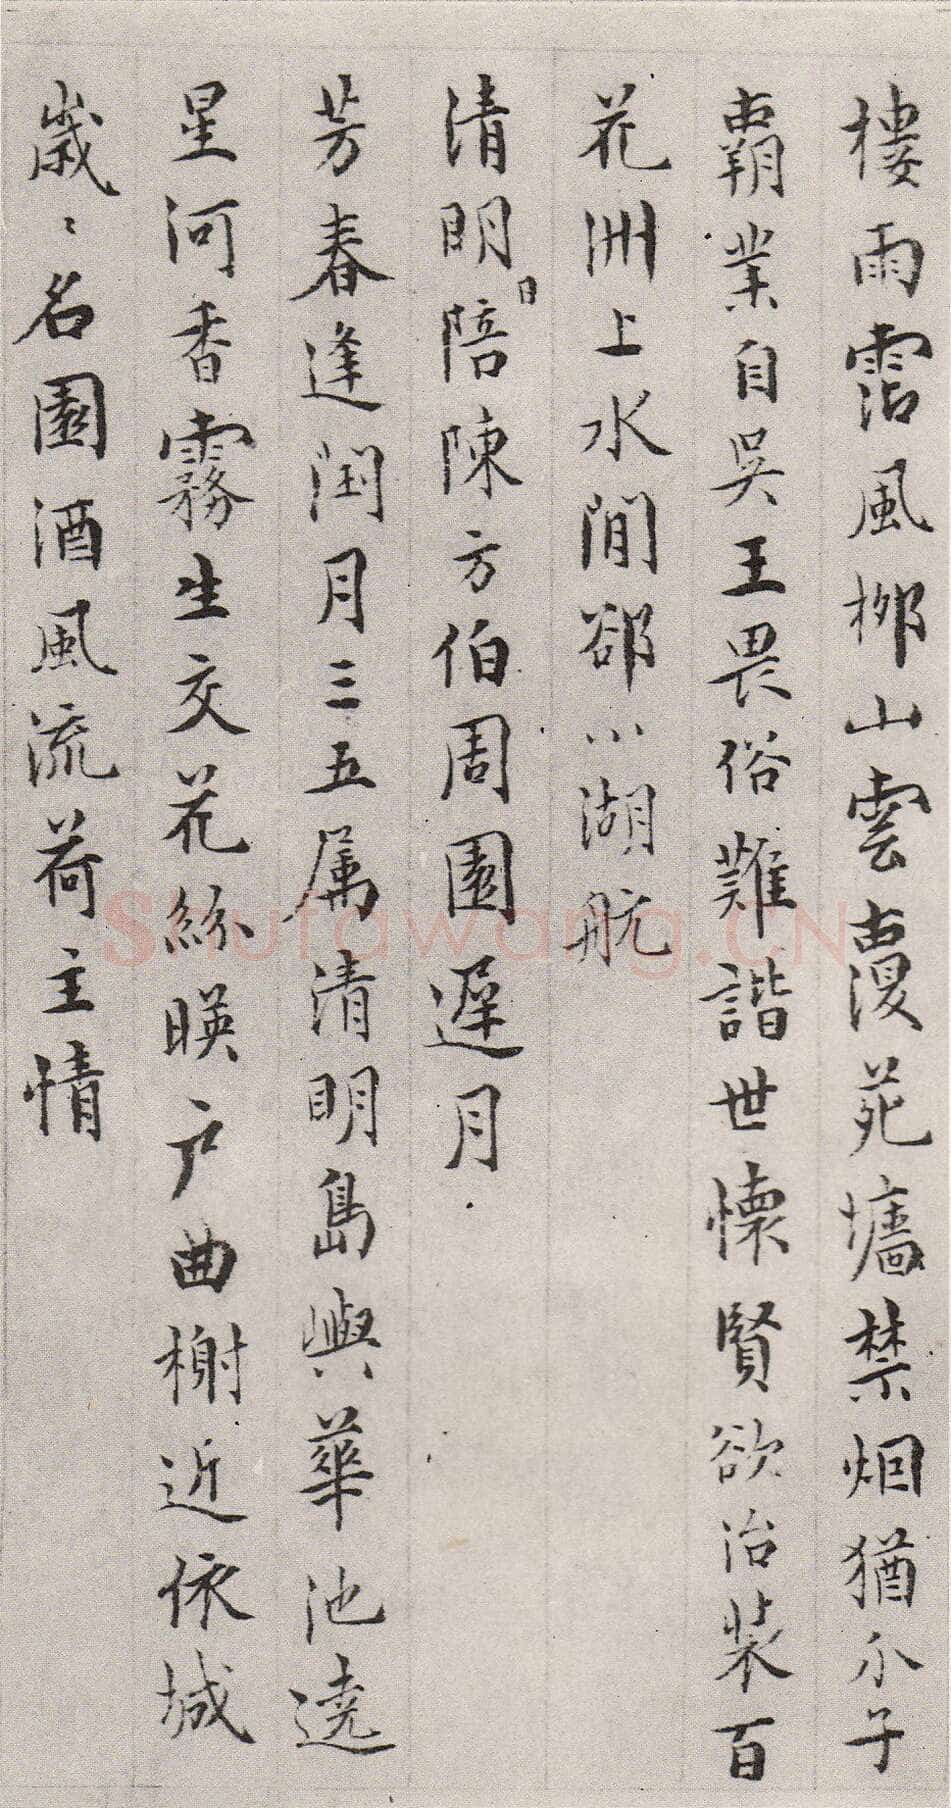 樓雨霑風栁山雲覆苑墻禁烟猶尒子
霸業自吳王畏俗難諧世懐賢欲治装百
花洲上水閒郤小湖航
清明日陪陳方伯周園遲月
芳春逢閏月三五属清明島嶼華池遶
星河香霧生交花絲暎户曲榭近依城
歳〻名園酒風流荷主情
ShufaWang.CN